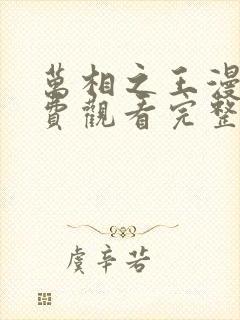 萬相之王漫
費觀看完整
虞辛若